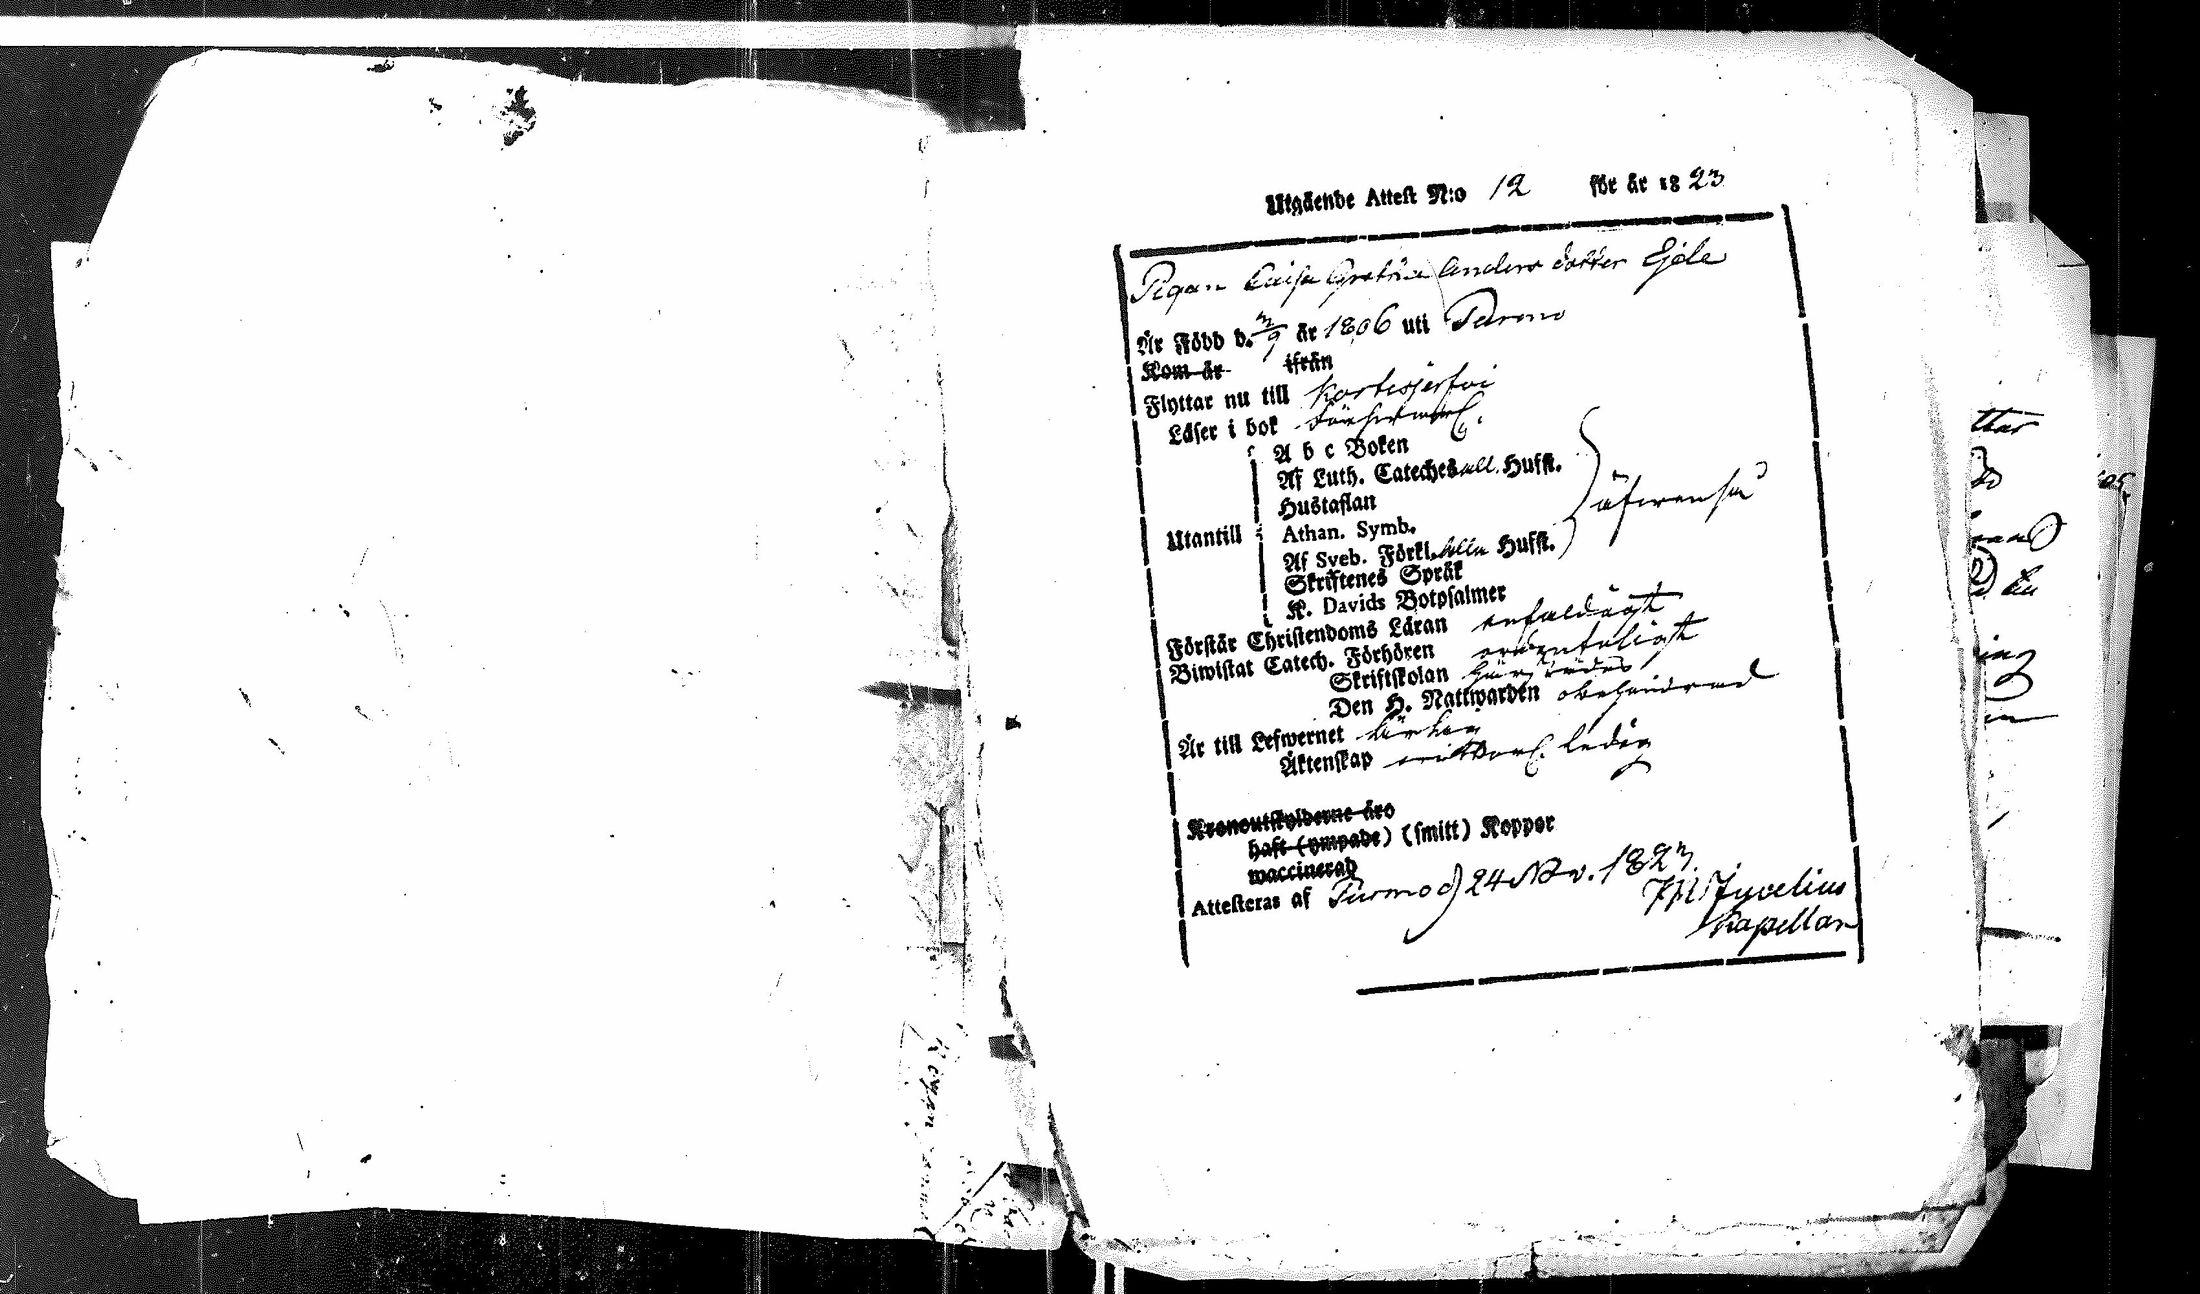 Utgående Attest N:o 12 för år 1823
Pigan Caisa Gretha Anders dotter Ejde
Är Född d. 3/9 år 1806 uti Purmo
Kom år ifrån
Flyttar nu till Kortesjerfvi
Läser i bok
A b c Boken
Af Luth. Cateches all. Hufst.
Hustaflan
Utantill
Athan. Symb.
Af Sveb. Förkl. alla Hufst.
Skriftenes Språk
K. Davids Botpsalmer
äfvenså
Förstår Christendoms Läran enfaldigt
Biwistat Catech. Förhören ordenteligt
Skriftskolan härstädes
Den H. Nattwarden obehindrad
Är till Lefwernet
Äktenskap ledig
Kronoutskylderne äro
haft (ympade) (smitt) Koppor
waccinerad
Attesteras af Purmo d 24 Nov. 1823
Jyvelius
Kapellan